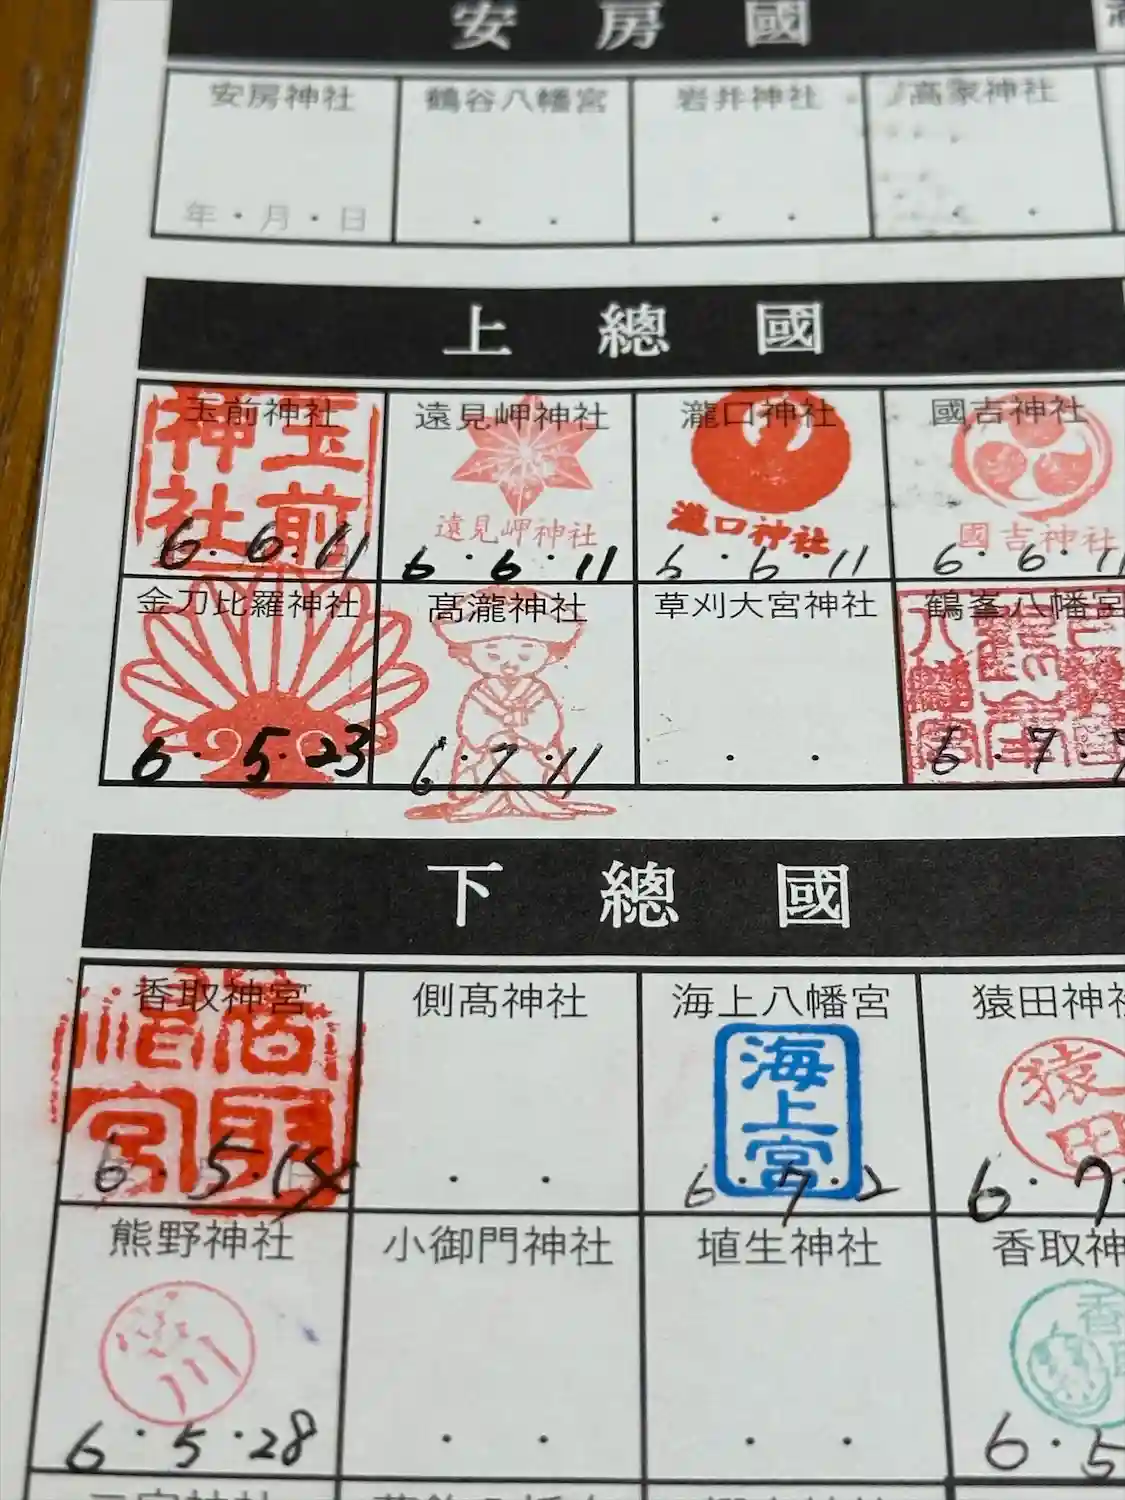 安房國
安房神社 鶴谷八幡宮 岩井神社 高家神社
年・月・日 ・ ・ ・ ・ ・ ・
上總國
玉前神社 遠見岬神社 瀧口神社 國吉神社
玉前神社 遠見岬神社 瀧口神社 國吉神社
6・6・11 6・6・11 6・6・11 6・6・11
金刀比羅神社 髙瀧神社 草刈大宮神社 鶴峯八幡宮
6・5・23 6・7・11 ・ ・ 6・7・
下總國
香取神宮 側髙神社 海上八幡宮 猿田神社
香取神宮 海上宮 猿田
6・5・14 ・ ・ 6・7・2 6・7・
熊野神社 小御門神社 埴生神社 香取神
香取
6・5・28 ・ ・ ・ ・ 6・5